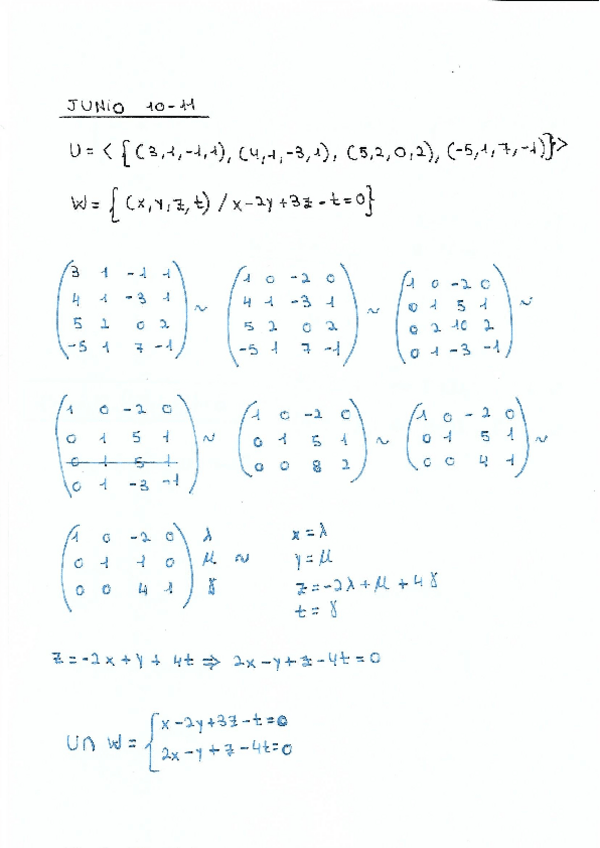 JUNIO 10-11
U = < {(3,1,-1,1), (4,1,-3,1), (5,2,0,2), (-5,1,7,-1)} >
W = { (x,y,z,t) / x-2y+3z-t=0}
(3 1 -1 1; 4 1 -3 1; 5 2 0 2; -5 1 7 -1) ~ (1 0 -2 0; 4 1 -3 1; 5 2 0 2; -5 1 7 -1) ~ (1 0 -2 0; 0 1 5 1; 0 2 10 2; 0 1 -3 -1) ~
(1 0 -2 0; 0 1 5 1; 0 1 5 1; 0 1 -3 -1) ~ (1 0 -2 0; 0 1 5 1; 0 0 8 2) ~ (1 0 -2 0; 0 1 5 1; 0 0 4 1) ~
(1 0 -2 0; 0 1 1 0; 0 0 4 1) λ μ γ ~ x=λ
y=μ
z=-2λ+μ+4γ
t=γ
z=-2x+y+4t ⇒ 2x-y+z-4t=0
U∩W = { x-2y+3z-t=0
2x-y+z-4t=0